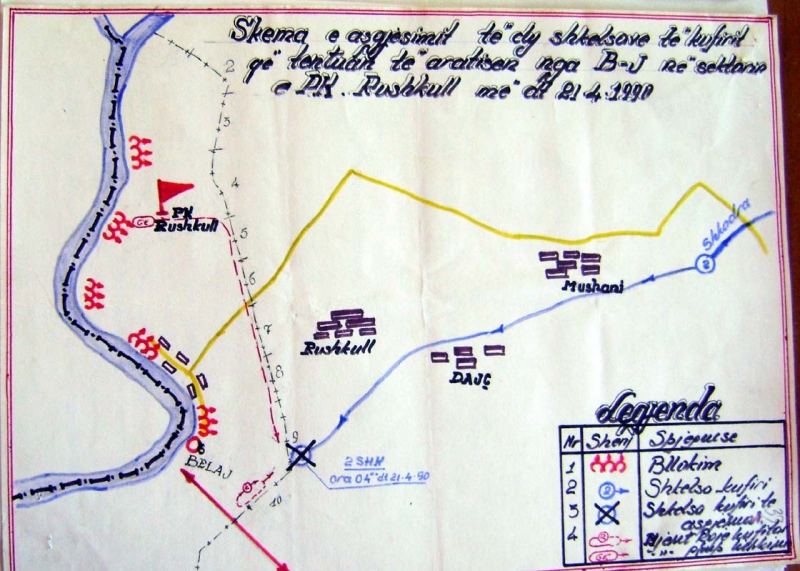 Skema e asgjesimit të dy shkelsave të kufirit
që tentuan të aratisen nga B-J në sektorin
e P.K. Rushkull më dt 21.4.1990
2
3
4
5
6
7
8
9
10
PK
Rushkull
Shkodra
2
Mushani
Rushkull
DAJÇ
BELAJ
2 SHK
ora 04⁰⁰ dt 21.4.90
Legjenda
Nr Shenj Spjegimse
1 Bllokim
2 2 Shkelsa kufiri
3 Shkelsa kufiri të
asgjesuar
4